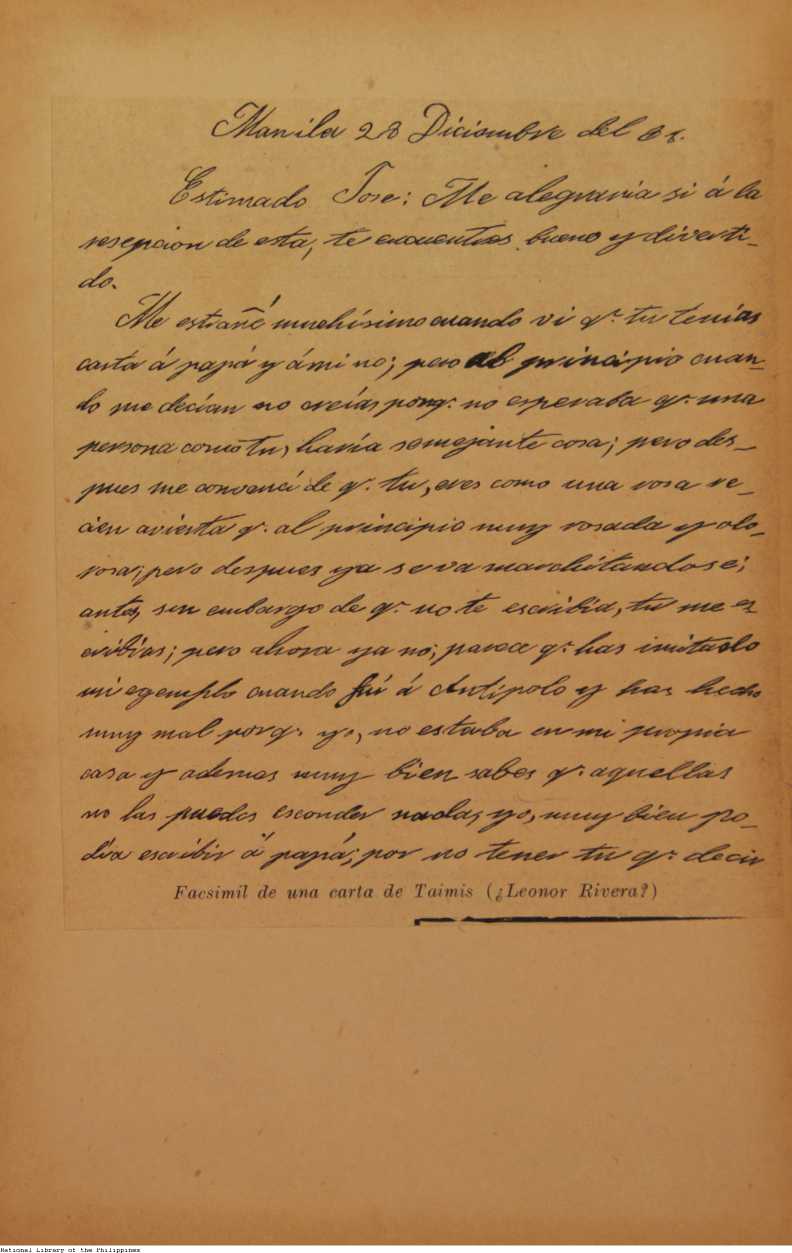 Manila 28 Diciembre del 81.
Estimado Jose: Me alegraria si á la
resepcion de esta, te encuentres bueno y diverti-
do.
Me estrañé muchísimo cuando vi q.e tu tenías
carta á papá y á mi no; pero al principio cuan-
do me decían no creías porq.e no esperaba q.e una
persona como tu, haría semejante cosa; pero des-
pues me convencí de q.e tu, eres como una rosa re-
cien avierta q.e al principio muy rosada y olo-
rosa; pero despues ya se va marchitandose;
antes, sin embargo de q.e no te escribía, tu me es
cribías; pero ahora ya no; parece q.e has imitado
mi egemplo cuando fuí á Antipolo y has hecho
muy mal porq.e yo, no estaba en mi propia
casa y ademas muy bien sabes q.e aquellas
no las puedes esconder nada, yo, muy bien po-
día escribir á papá; por no tener tu q.e decir
Facsimil de una carta de Taimis (¿Leonor Rivera?)
National Library of the Philippines